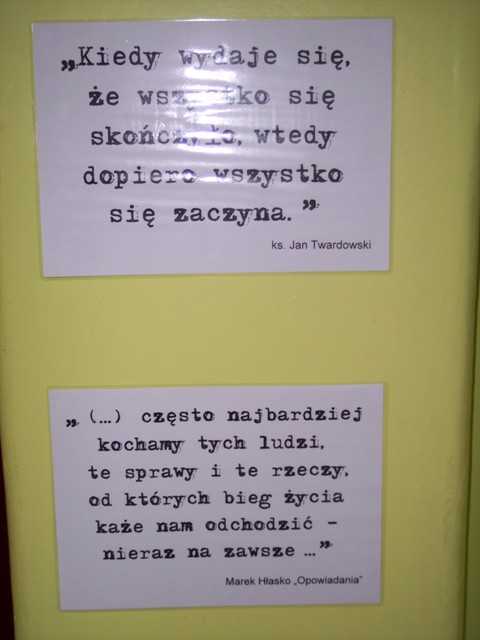 „Kiedy wydaje się,
że wszystko się
skończyło, wtedy
dopiero wszystko
się zaczyna.”
ks. Jan Twardowski
„(...) często najbardziej
kochamy tych ludzi,
te sprawy i te rzeczy,
od których bieg życia
każe nam odchodzić –
nieraz na zawsze ...”
Marek Hłasko „Opowiadania”